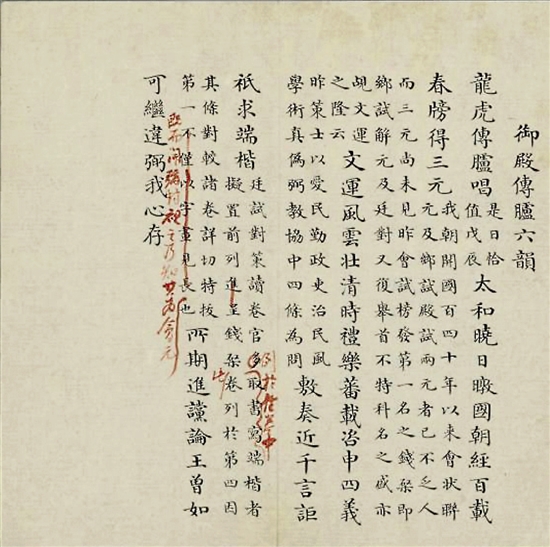 御殿傳臚六韻
龍虎傳臚唱
是日恰
值戊辰
太和曉日暾國朝經百載
春牓得三元
我朝開國百四十年以來會狀聯
元及鄉試殿試兩元者已不乏人
而三元尚未見昨會試榜發第一名之錢棨即
鄉試解元及廷對又復舉首不特科名之盛亦
覘文運
之隆云
文運風雲壯清時禮樂蕃載咨申四義
昨策士以愛民勤政史治民風
學術真偽弼教協中四條為問
敷奏近千言詎
祇求端楷
廷試對策讀卷官多取書寫端楷者
擬置前列進呈錢棨卷列於第四因
其條對較諸卷詳切特拔
第一不僅以字畫見長也
所期進讜論王曾如
可繼違弼我心存